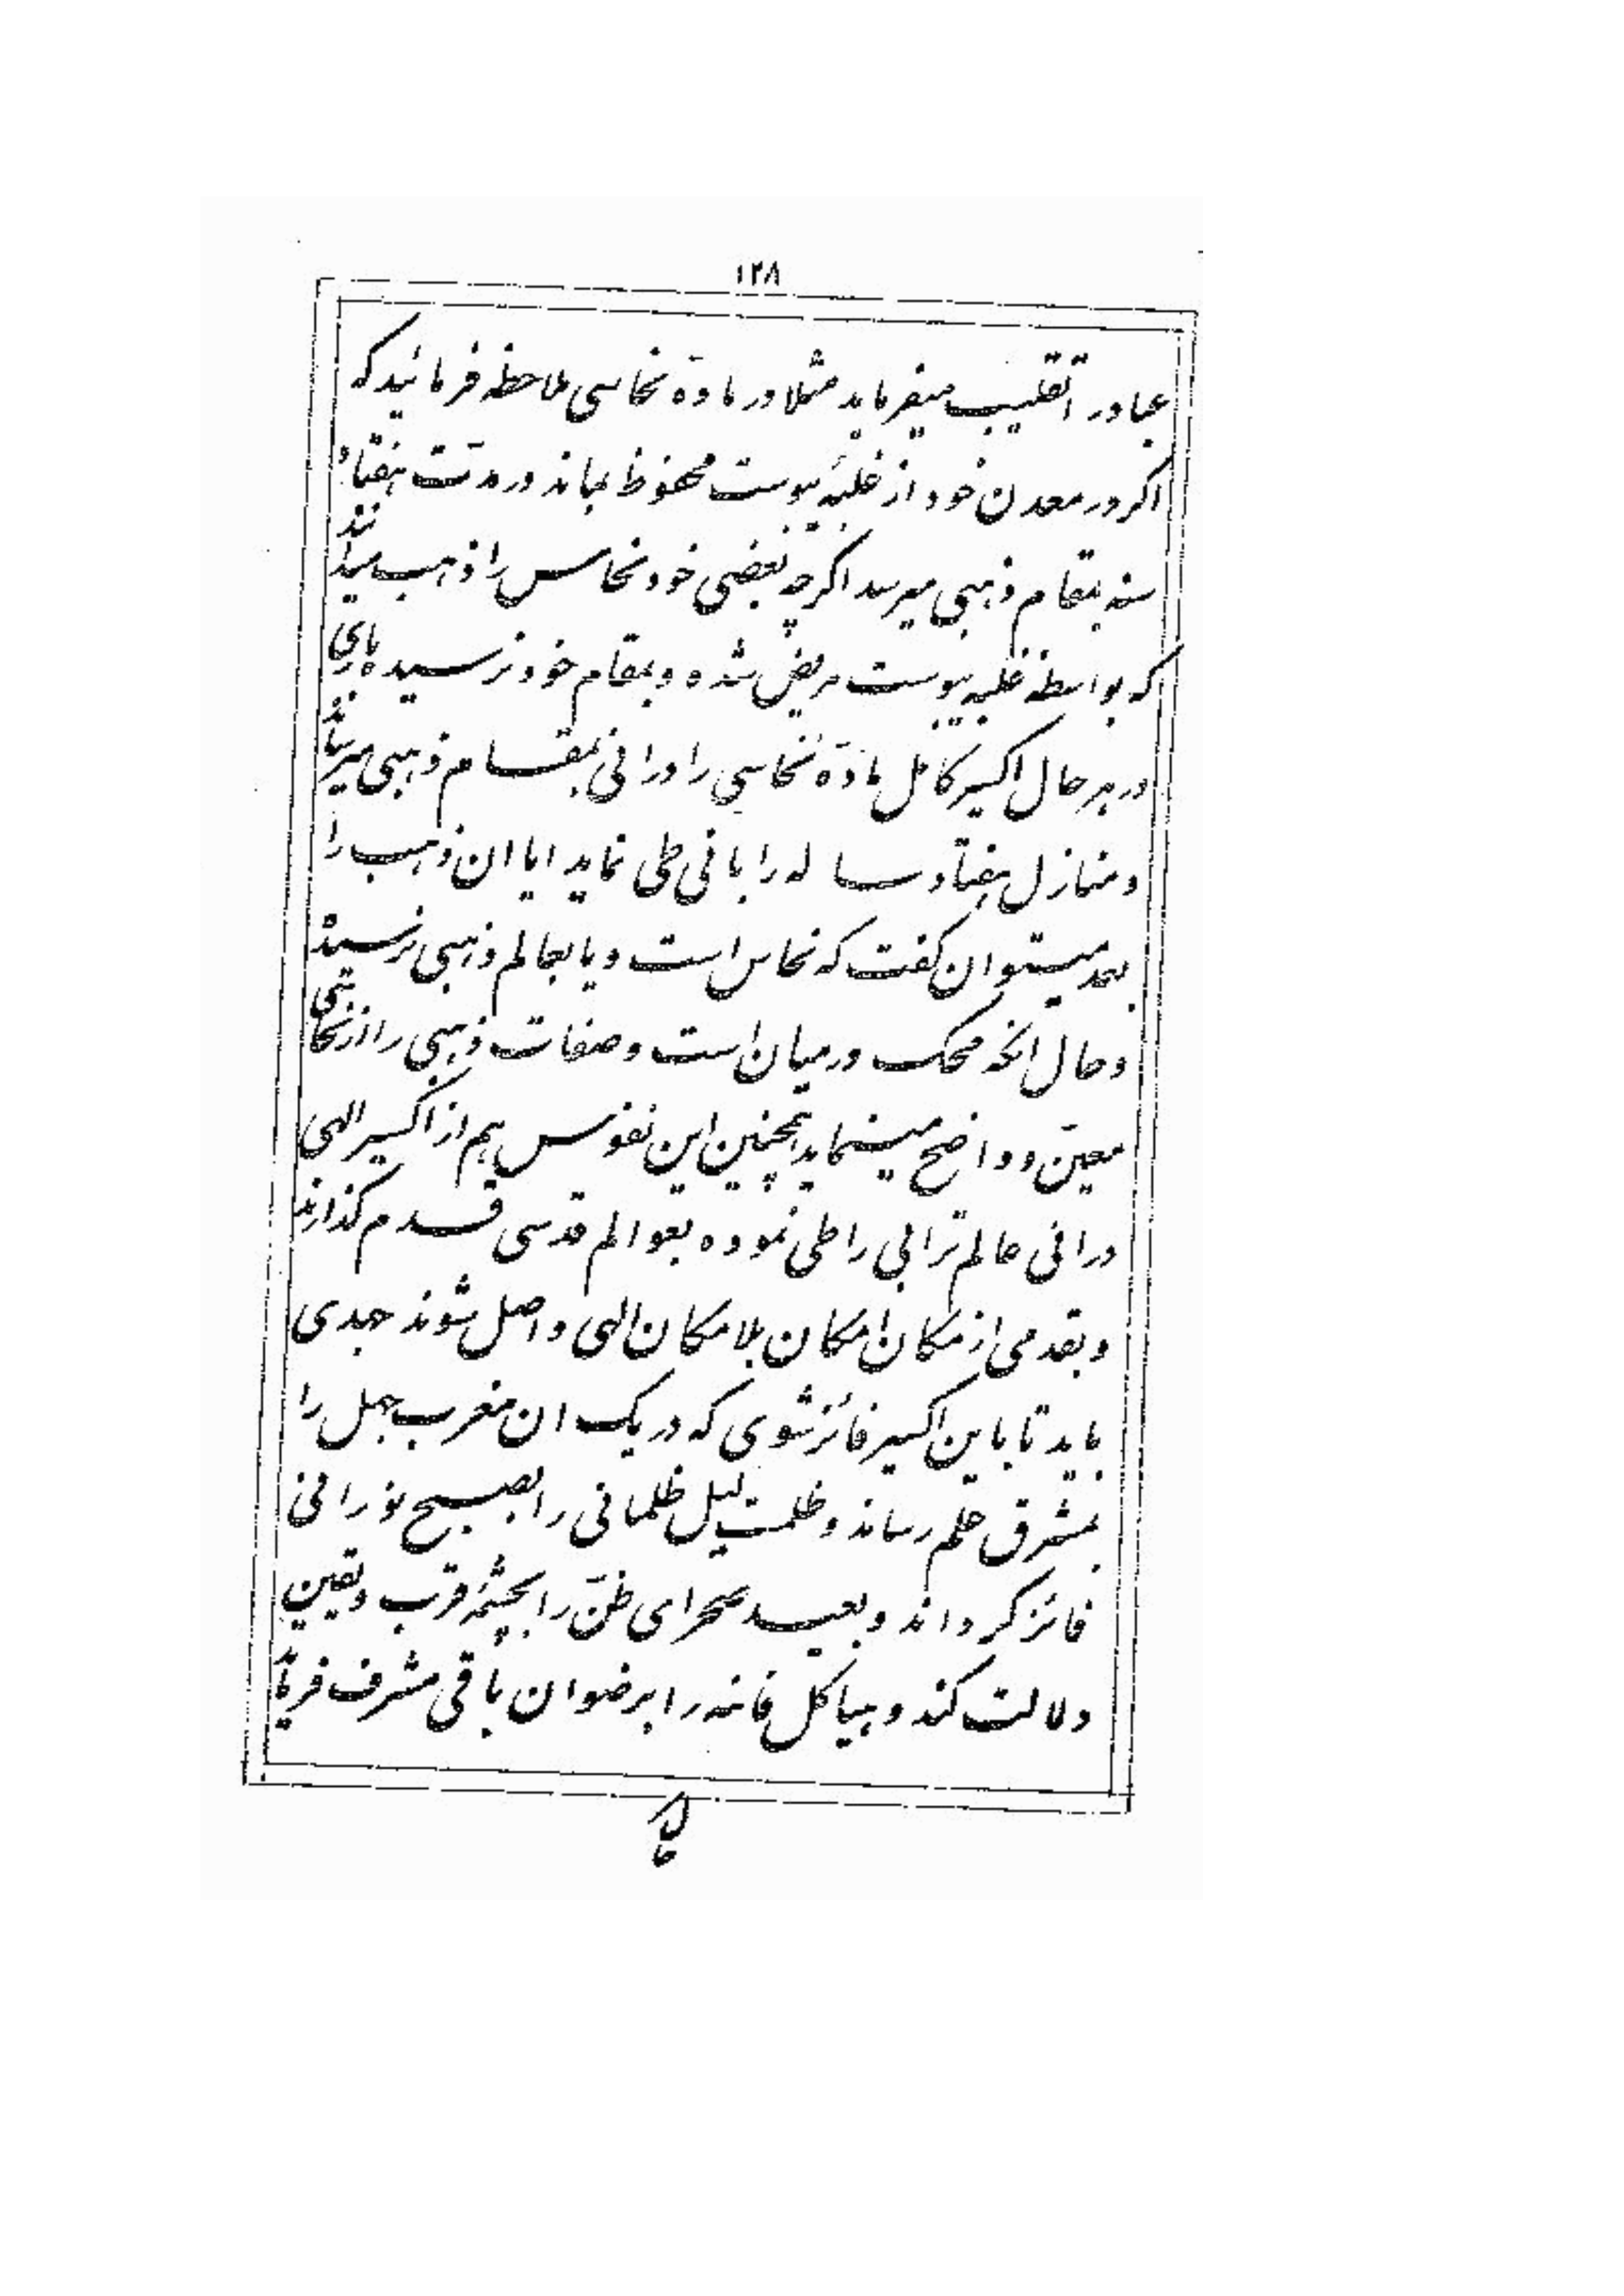 ۱۲۸
عباد را تقلیب میفرماید مثلا در مادّه نحاسی ملاحظه فرمائید که
اکر در معدن خود از غلبهٔ یبوست محفوظ بماند در مدّت هفتاد
سنه بمقام ذهبی میرسد اکرچه بعضی خود نحاس را ذهب میدانند
که بواسطه غلبه یبوست مریض شده و بمقام خود نرسیده باری
در هر حال اکسیر کامل مادّه نحاسی را در انی بمقام ذهبی میرساند
و منازل هفتاد ساله را بانی طی نماید ایا ان ذهب را
بعد میتوان کفت که نحاس است و یا بعالم ذهبی نرسیده
و حال انکه محک در میان است و صفات ذهبی را از نحاسی
معیّن و واضح مینماید همچنین این نفوس هم از اکسیر الهی
در انی عالم ترابی را طی نموده بعوالم قدسی قدم کذارند
و بقدمی از مکان امکان بلامکان الهی واصل شوند جهدی
باید تا باین اکسیر فائز شوی که در یک ان مغرب جهل را
بمشرق علم رساند و ظلمت لیل ظلمانی را بصبح نورانی
فائز کرداند و بعید صحرای ظنّ را بچشمهٔ قرب و یقین
دلالت کند و هیاکل فانیه را برضوان باقی مشرف فرماید